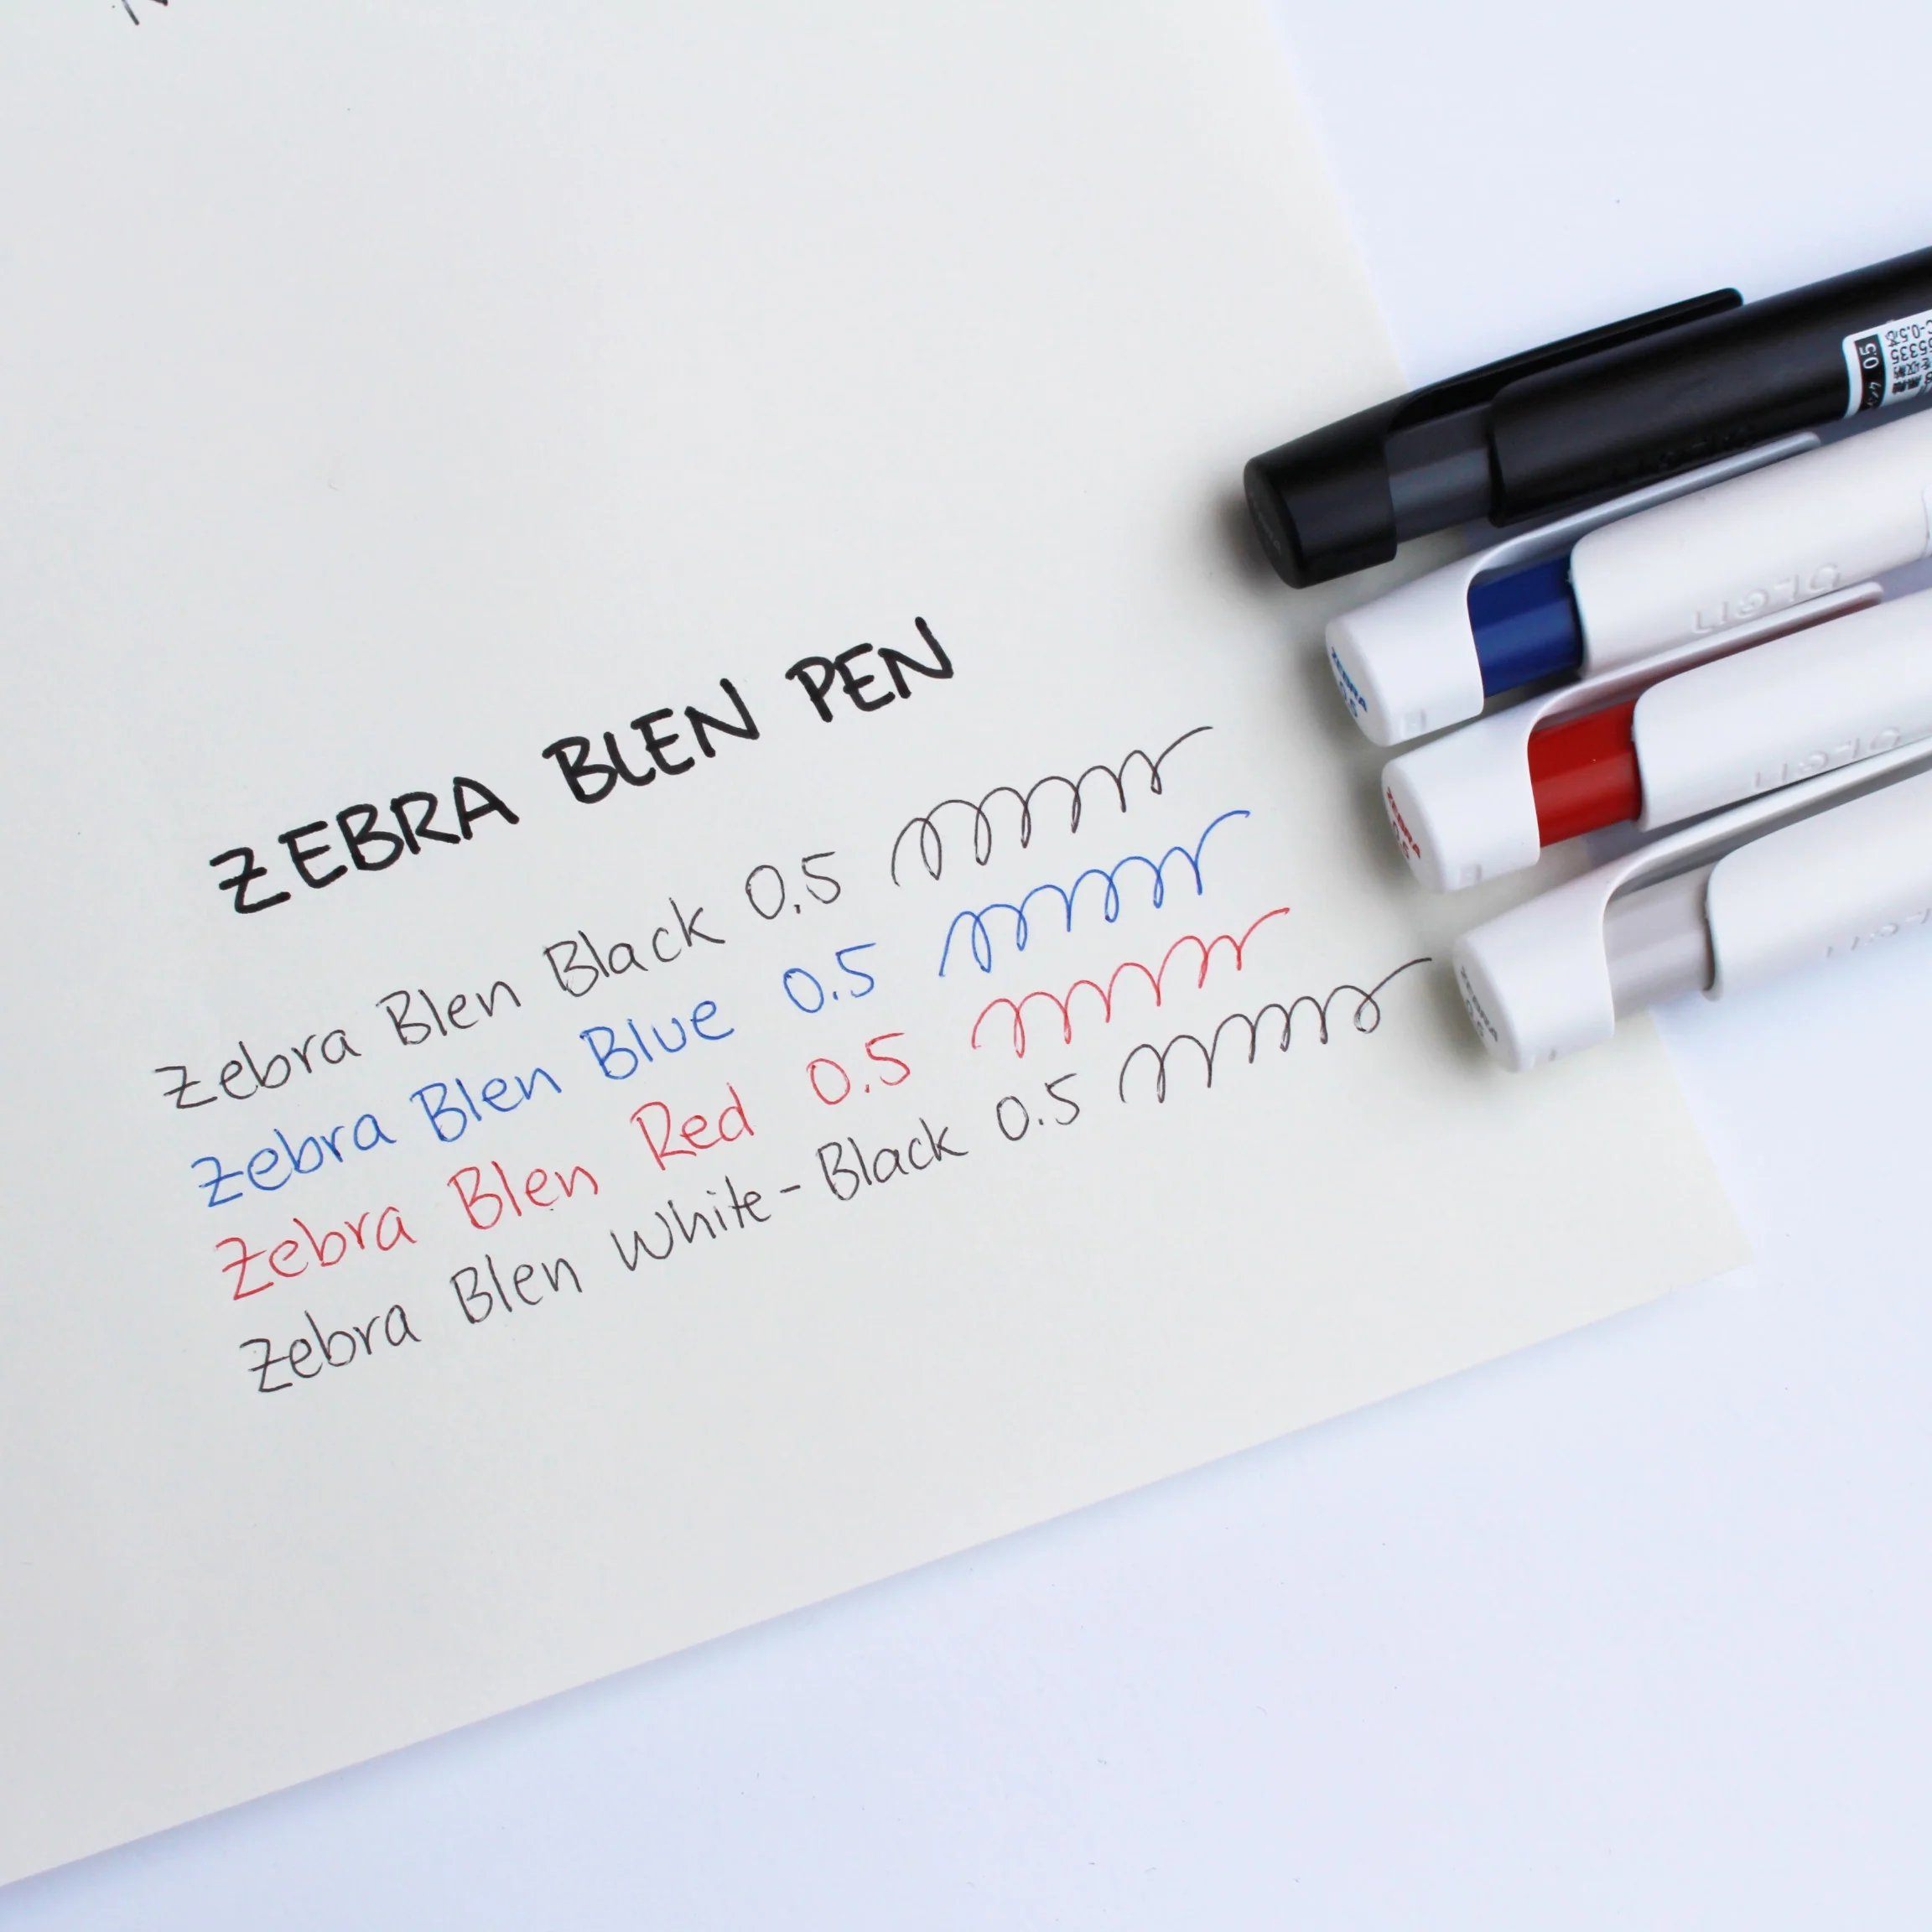 ZEBRA BLEN PEN
Zebra Blen Black 0.5
Zebra Blen Blue 0.5
Zebra Blen Red 0.5
Zebra Blen White-Black 0.5
0.5
blen
ZEBRA
0.5
blen
ZEBRA
0.5
blen
ZEBRA
0.5